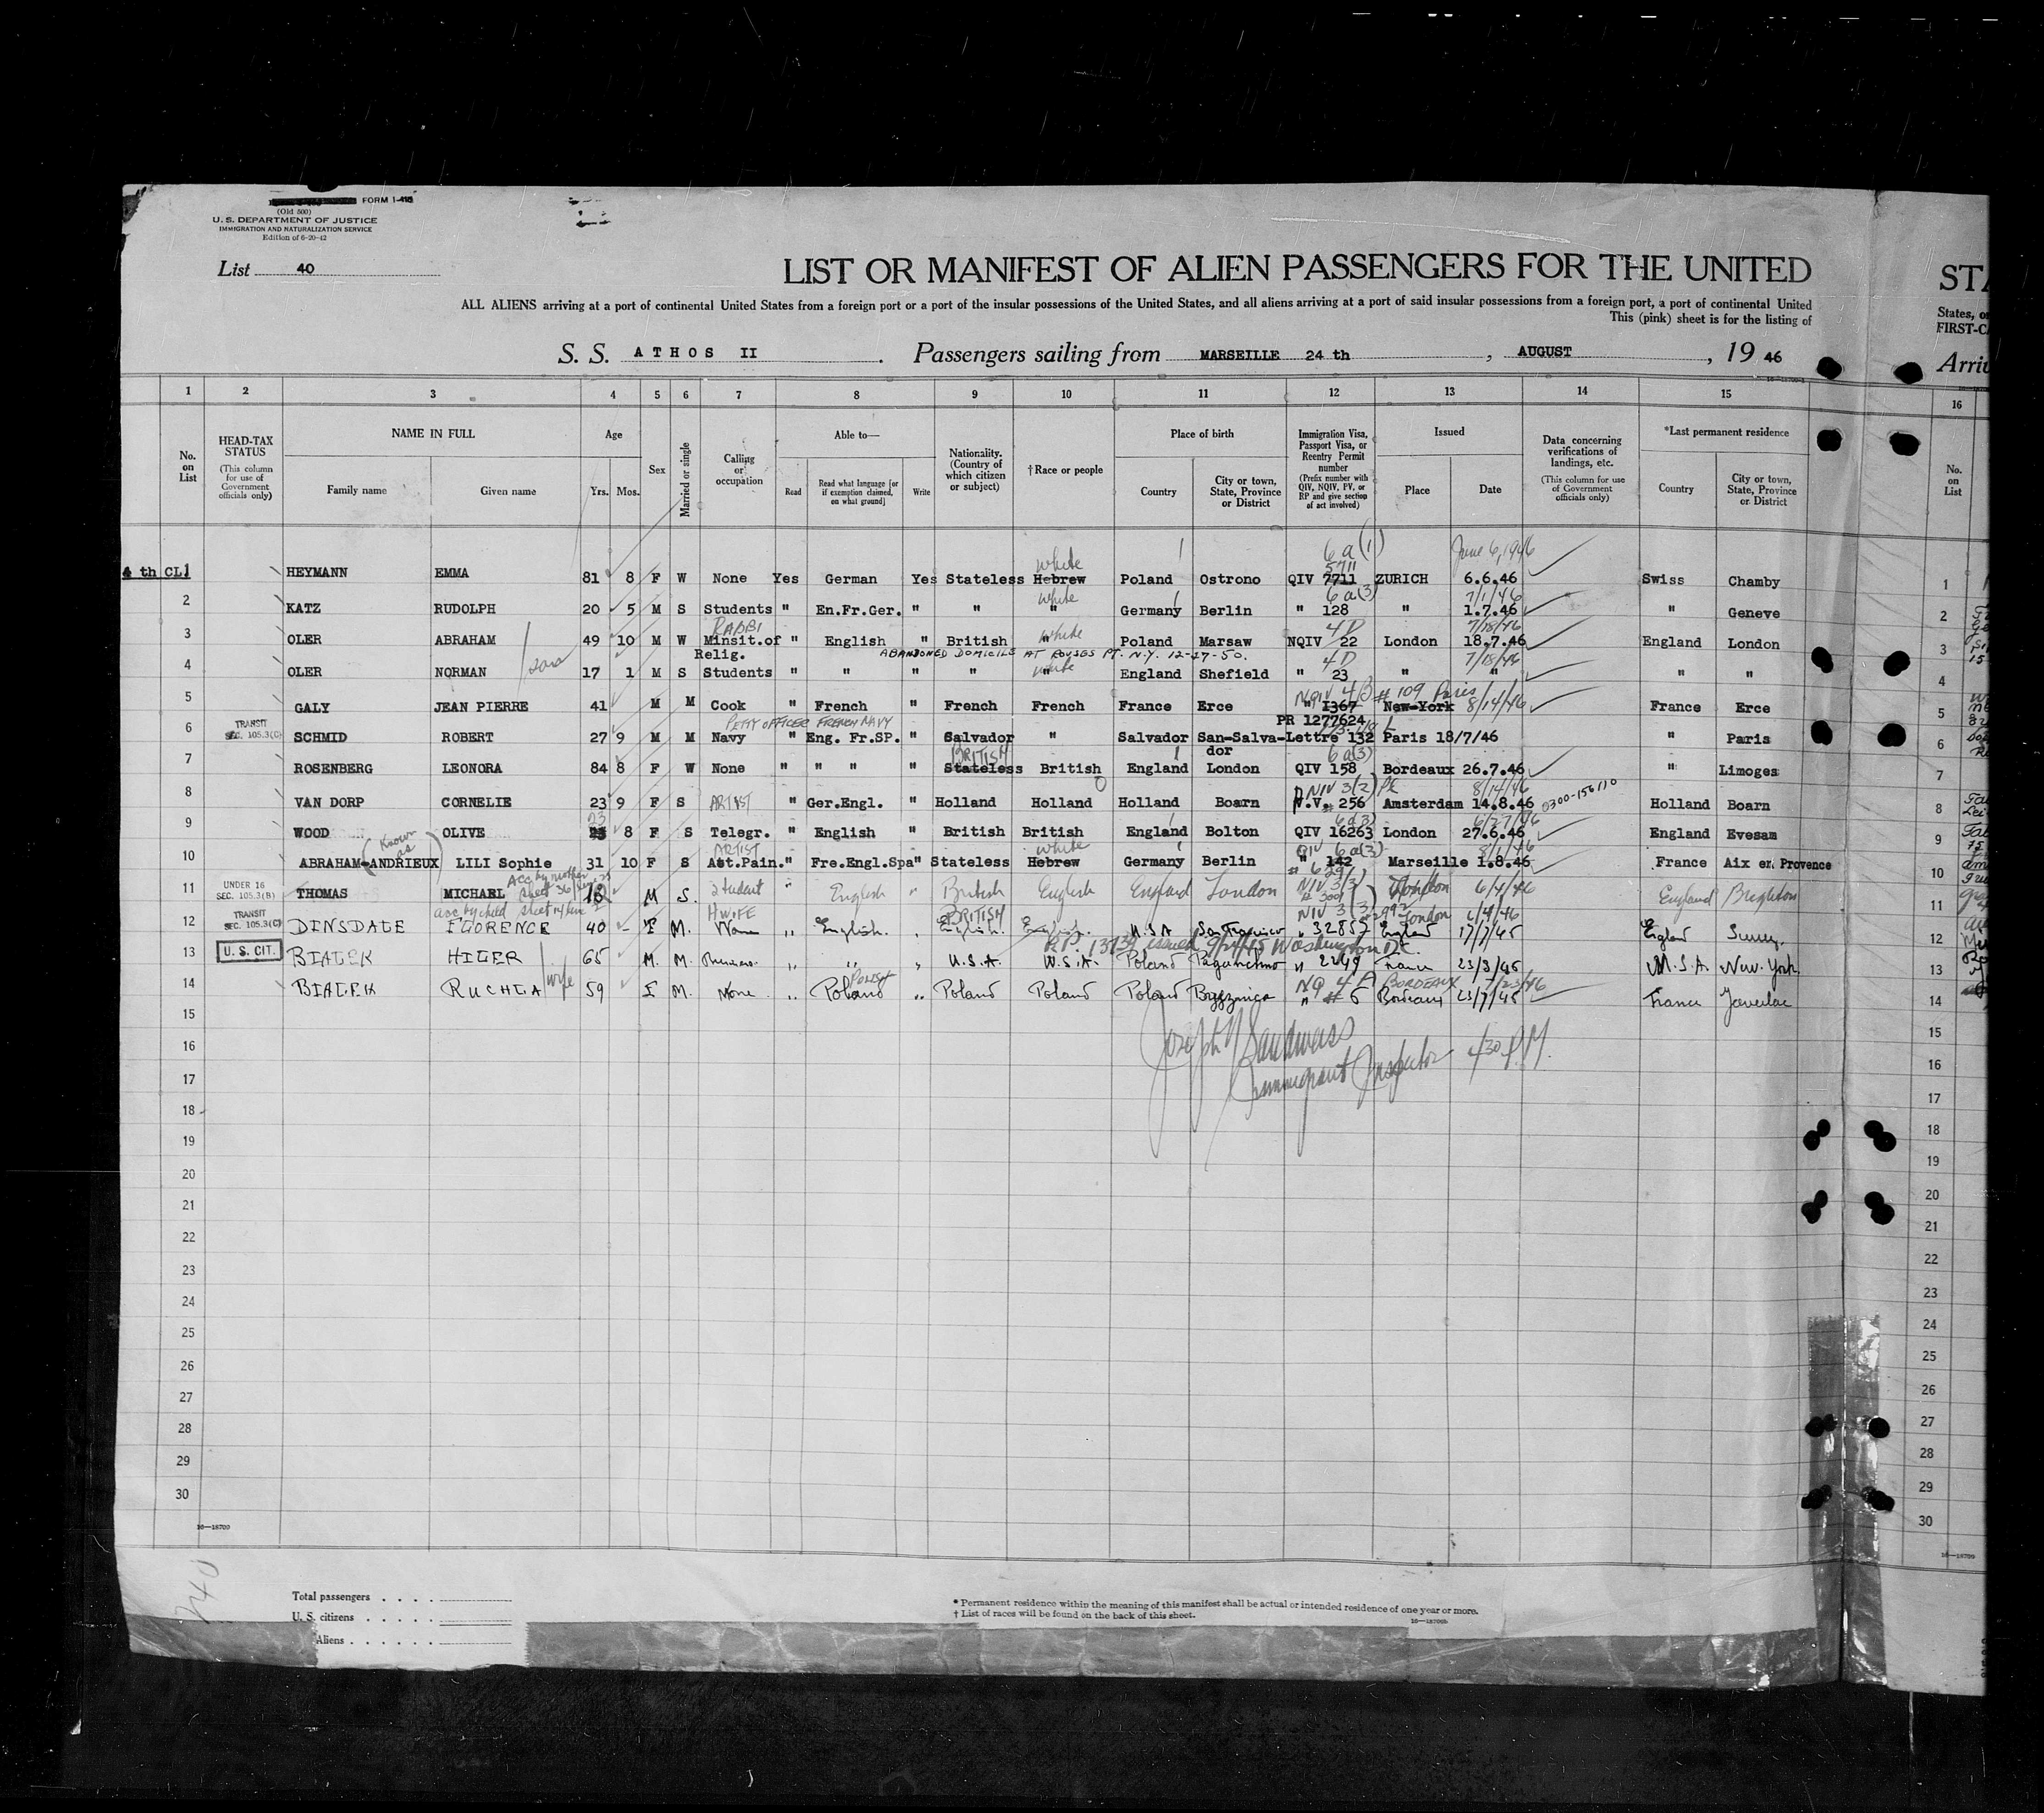 FORM I-415
(Old 500)
U. S. DEPARTMENT OF JUSTICE
IMMIGRATION AND NATURALIZATION SERVICE
Edition of 6-20-42
List 40
LIST OR MANIFEST OF ALIEN PASSENGERS FOR THE UNITED
STA
ALL ALIENS arriving at a port of continental United States from a foreign port or a port of the insular possessions of the United States, and all aliens arriving at a port of said insular possessions from a foreign port, a port of continental United
States, o
This (pink) sheet is for the listing of
FIRST-C
S. S. ATHOS II . Passengers sailing from MARSEILLE 24 th , AUGUST , 19 46
Arriv
1 2 3 4 5 6 7 8 9 10 11 12 13 14 15 16
No. on List
HEAD-TAX STATUS (This column for use of Government officials only)
NAME IN FULL Family name Given name
Age Yrs. Mos.
Sex
Married or single
Calling or occupation
Able to— Read Read what language [or if exemption claimed, on what ground] Write
Nationality. (Country of which citizen or subject)
†Race or people
Place of birth Country City or town, State, Province or District
Immigration Visa, Passport Visa, or Reentry Permit number (Prefix number with QIV, NQIV, PV, or RP and give section of act involved)
Issued Place Date
Data concerning verifications of landings, etc. (This column for use of Government officials only)
*Last permanent residence Country City or town, State, Province or District
No. on List
6a(1) June 6, 1946
white 5711
4 th CL 1 HEYMANN EMMA 81 8 F W None Yes German Yes Stateless Hebrew Poland Ostrono QIV 7711 ZURICH 6.6.46 Swiss Chamby 1
white 6a(3) 7/1/46
2 KATZ RUDOLPH 20 5 M S Students " En.Fr.Ger. " " " Germany Berlin " 128 " 1.7.46 " Geneve 2
RABBI white 4D 7/18/46
3 OLER ABRAHAM 49 10 M W Minsit.of Relig. " English " British " Poland Marsaw NQIV 22 London 18.7.46 England London 3
ABANDONED DOMICILE AT ROUSES PT. N.Y. 12-27-50.
white 4D 7/18/46
4 OLER NORMAN 17 1 M S Students " " " " " England Shefield " 23 " " " " 4
NQIV 4B #109 Paris 8/14/46
5 GALY JEAN PIERRE 41 M M Cook " French " French French France Erce " 1367 New-York France Erce 5
PETTY OFFICER FRENCH NAVY PR 1277624
TRANSIT SEC. 105.3(C)
6 SCHMID ROBERT 27 9 M M Navy " Eng. Fr.SP. " Salvador " Salvador San-Salva-dor Lettre 132 Paris 18/7/46 " Paris 6
BRITISH 6a(3)
7 ROSENBERG LEONORA 84 8 F W None " " " " Stateless British England London QIV 158 Bordeaux 26.7.46 " Limoges 7
NIV 3(2) 8/14/46
8 VAN DORP CORNELIE 23 9 F S ARTIST " Ger.Engl. " Holland Holland Holland Boarn N.V. 256 Amsterdam 14.8.46 0300-156110 Holland Boarn 8
23 6a(3) 6/27/46
9 WOOD OLIVE 25 8 F S Telegr. " English " British British England Bolton QIV 16263 London 27.6.46 England Evesam 9
(Known as) ARTIST white QIV 6a(3) 8/1/46
10 ABRAHAM-ANDRIEUX LILI Sophie 31 10 F S Ast.Pain. " Fre.Engl.Spa " Stateless Hebrew Germany Berlin " 142 Marseille 1.8.46 France Aix en Provence 10
UNDER 16 SEC. 105.3(B)
Acc by mother sheet 36
11 THOMAS MICHAEL M S. Student " English " British English England London NIV 3(3) London 6/4/46 England Brighton 11
acc by child sheet
HWIFE BRITISH NIV 3(3) 2992 London 6/4/46
TRANSIT SEC. 105.3(C)
12 DINSDALE FLORENCE 40 - F M. None " English. " English. English. U.S.A San Francisco " 32857 England 17/7/45 England Surrey. 12
R.P. 13739 issued 9/21/45 Washington DC.
U. S. CIT.
13 BIALEK HILER 65 M. M. Business " " " U.S.A. U.S.A. Poland " 2249 France 23/3/46 U.S.A. New. York. 13
wife POLISH NQ 4A BORDEAUX 7/23/46
14 BIALEK RUCHLA 59 F M. None " Poland " Poland Poland Poland " # 6 Bordeaux 23/7/46 France Javerlac 14
15 15
Joseph Sandwass
16 Immigrant Inspector 4:30 P.M. 16
17 17
18 18
19 19
20 20
21 21
22 22
23 23
24 24
25 25
26 26
27 27
28 28
29 29
30 30
16—18709
16—18709
240
Total passengers . . . .
U. S. citizens . . . . .
Aliens . . . . . .
* Permanent residence within the meaning of this manifest shall be actual or intended residence of one year or more.
† List of races will be found on the back of this sheet.